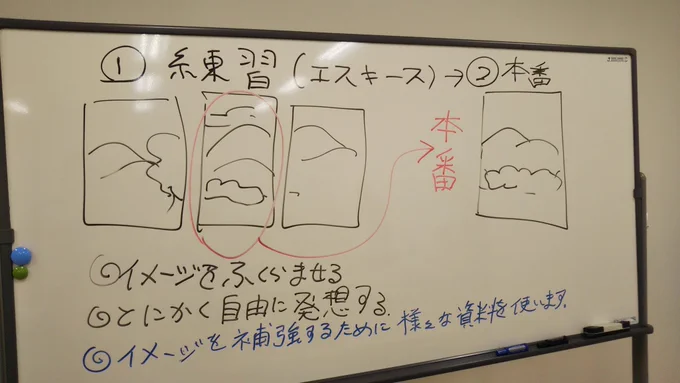 ① 練習(エスキース)→② 本番
本番
◎イメージをふくらませる
◎とにかく自由に発想する.
◎イメージを補強するために様々な資料を使います.